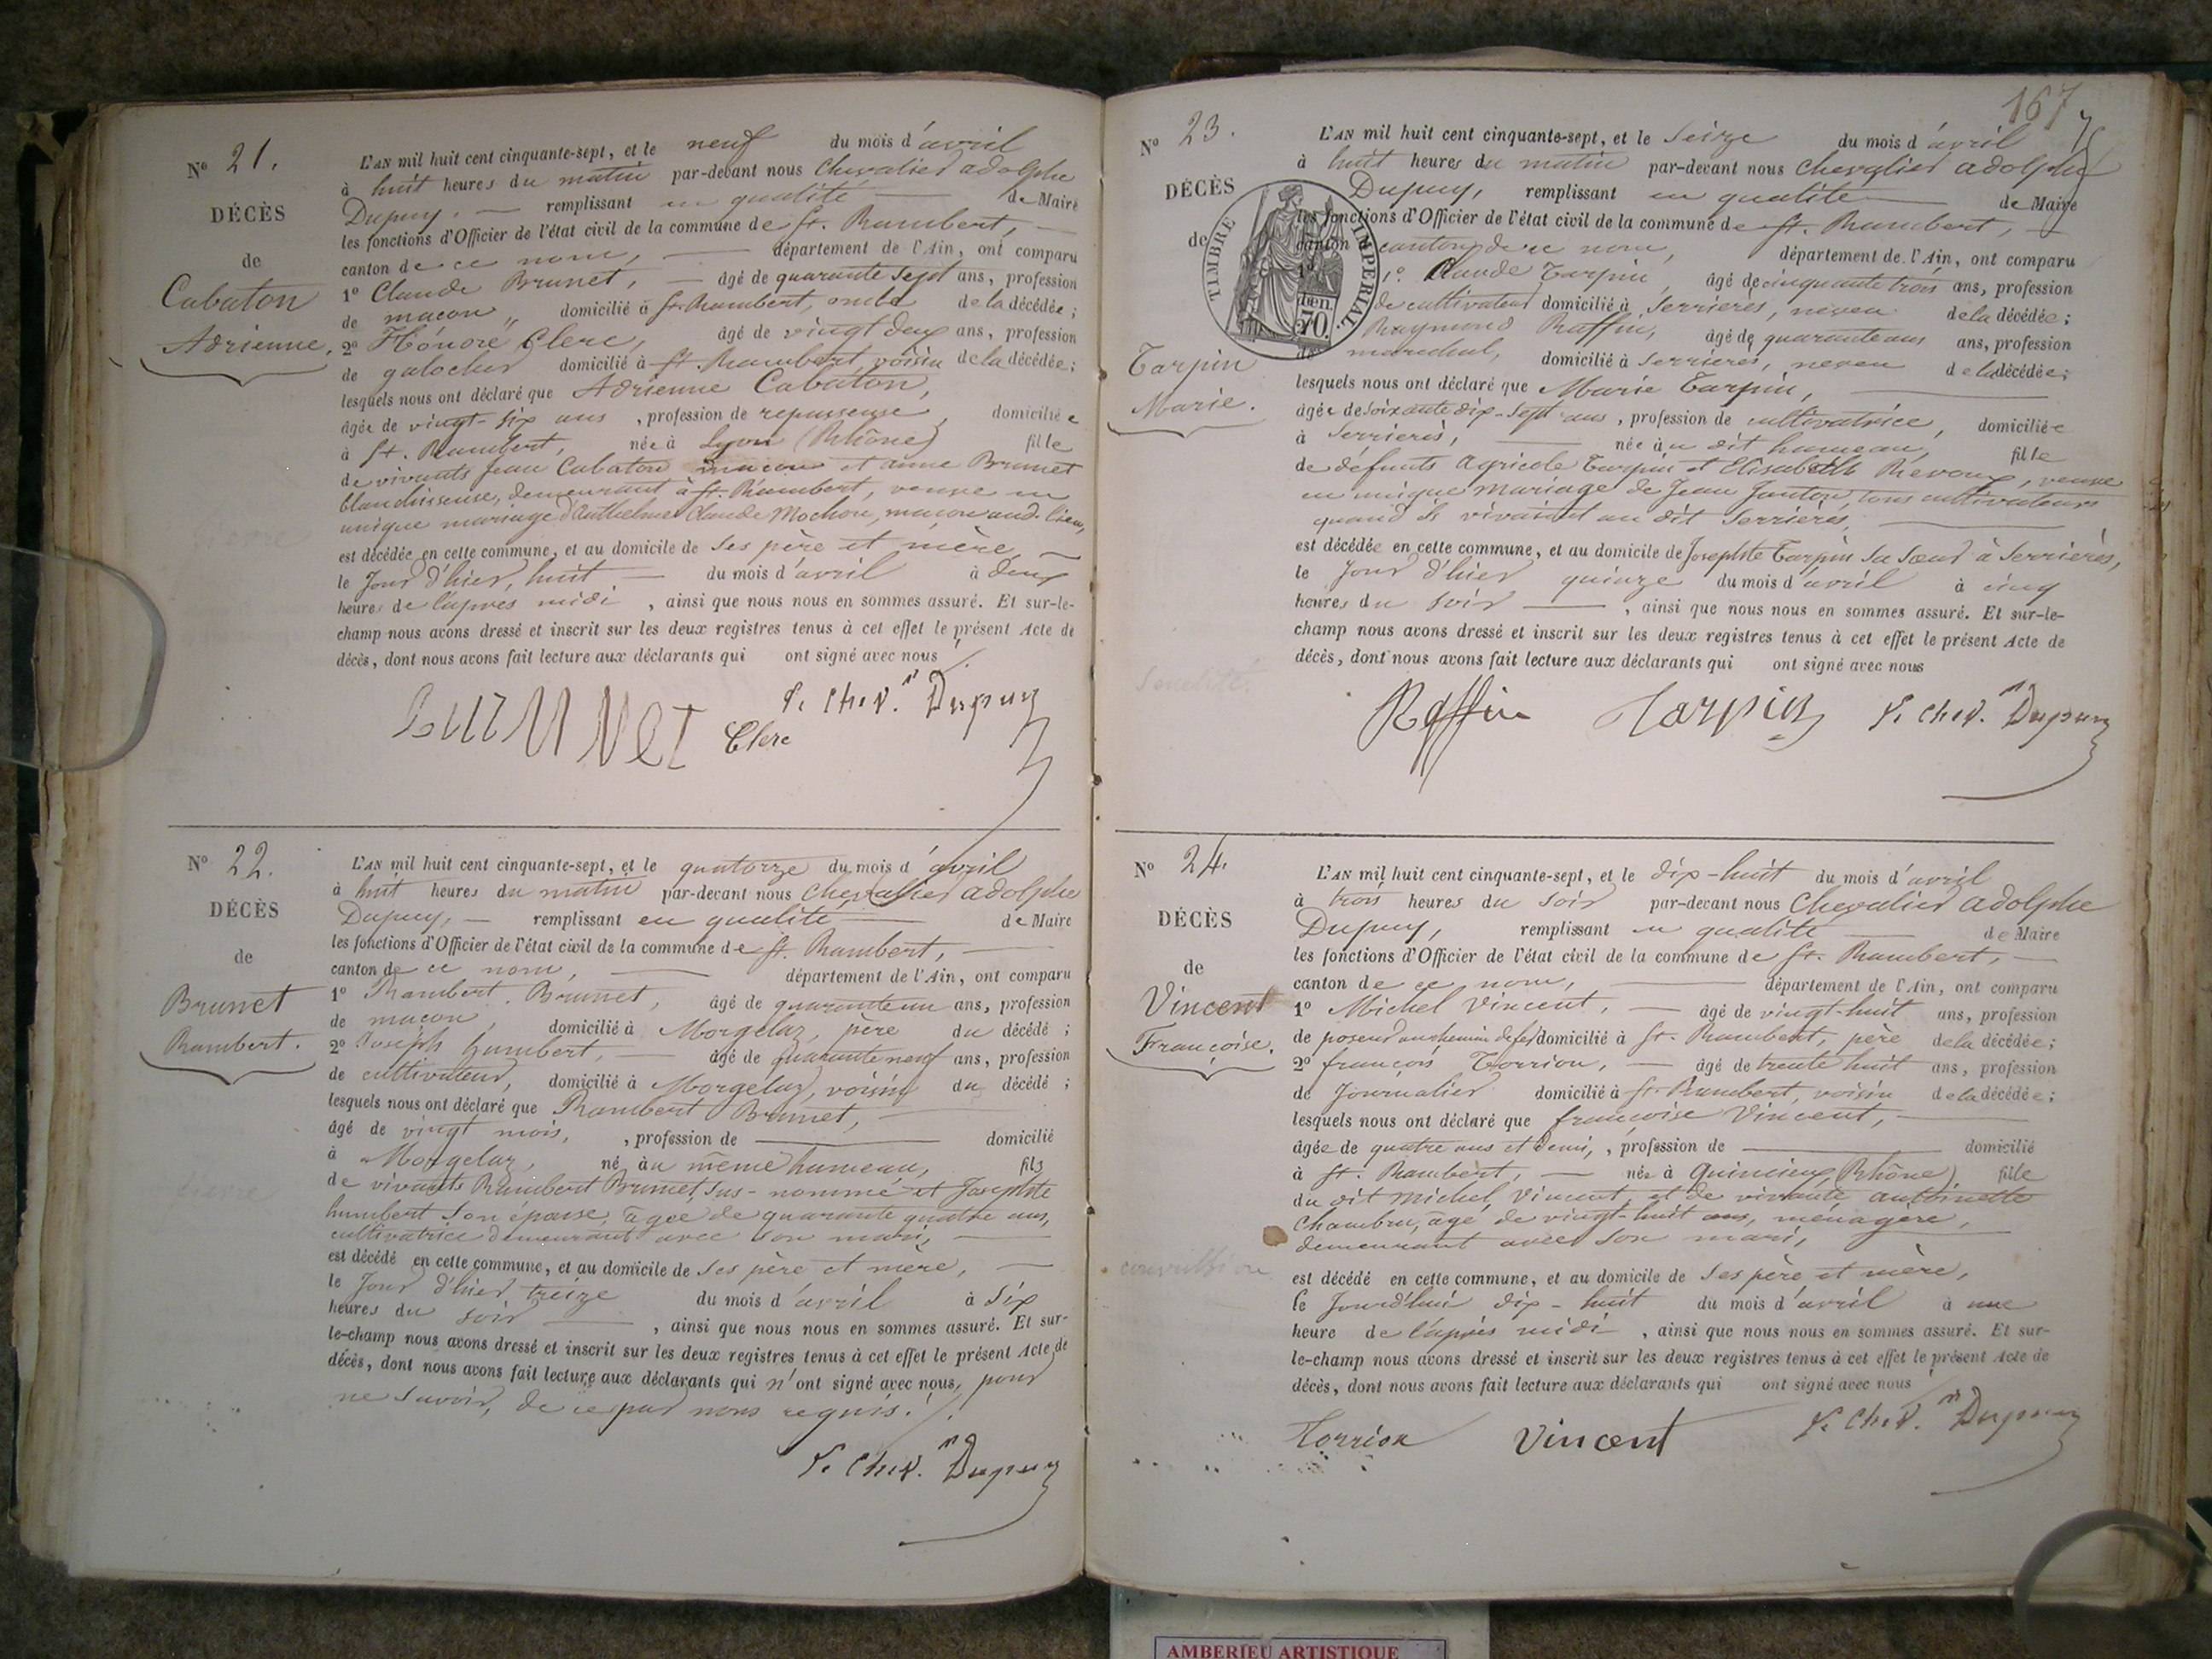 N° 21.
DÉCÈS
de
Cabaton
Adrienne.
L'AN mil huit cent cinquante-sept, et le neuf du mois d'avril
à huit heures du matin par-devant nous Chevalier adolphe
Dupuy, remplissant en qualité de Maire
les fonctions d'Officier de l'état civil de la commune de St. Rambert,
canton de ce nom, département de l'Ain, ont comparu
1° Claude Brunet, âgé de quarante sept ans, profession
de maçon, domicilié à St. Rambert, oncle de la décédée;
2° Hónoré Clerc, âgé de vingt deux ans, profession
de galocher domicilié à St. Rambert, voisin de la décédée;
lesquels nous ont déclaré que Adrienne Cabaton,
âgée de vingt-six ans, profession de repasseuse, domiciliée
à St. Rambert, née à Lyon (Rhône) fille
de vivants Jean Cabaton maçon et anne Brunet
blanchisseuse, demeurant à St. Rambert, veuve en
unique mariage d'Anthelme Claude Mochon, maçon aud. lieu,
est décédée en cette commune, et au domicile de ses père et mère,
le Jour d'hier, huit du mois d'avril à deux
heures de l'après midi, ainsi que nous nous en sommes assuré. Et sur-le-
champ nous avons dressé et inscrit sur les deux registres tenus à cet effet le présent Acte de
décès, dont nous avons fait lecture aux déclarants qui ont signé avec nous
Clerc Dupuy
N° 22.
DÉCÈS
de
Brunet
Rambert.
L'AN mil huit cent cinquante-sept, et le quatorze du mois d'avril
à huit heures du matin par-devant nous Chevallier adolphe
Dupuy, remplissant en qualité de Maire
les fonctions d'Officier de l'état civil de la commune de St. Rambert,
canton de ce nom, département de l'Ain, ont comparu
1° Rambert Brunet, âgé de quarante un ans, profession
de maçon, domicilié à Morgelaz, père du décédé;
2° Joseph humbert, âgé de quarante neuf ans, profession
de cultivateur, domicilié à Morgelaz, voisin du décédé;
lesquels nous ont déclaré que Rambert Brunet,
âgé de vingt mois, profession de domicilié
à Morgelaz, né au même hameau, fils
de vivants Rambert Brunet, sus-nommé et Josephte
humbert son épouse, âgée de quarante quatre ans,
cultivatrice demeurant avec son mari,
est décédé en cette commune, et au domicile de ses père et mère,
le Jour d'hier treize du mois d'avril à six
heures du soir, ainsi que nous nous en sommes assuré. Et sur-
le-champ nous avons dressé et inscrit sur les deux registres tenus à cet effet le présent Acte de
décès, dont nous avons fait lecture aux déclarants qui n'ont signé avec nous, pour
ne savoir, de ce par nous requis.
Dupuy
167
N° 23.
DÉCÈS
de
Tarpin
Marie.
TIMBRE IMPÉRIAL
L'AN mil huit cent cinquante-sept, et le seize du mois d'avril
à huit heures du matin par-devant nous Chevalier adolphe
Dupuy, remplissant en qualité de Maire
les fonctions d'Officier de l'état civil de la commune de St. Rambert,
canton canton de ce nom, département de l'Ain, ont comparu
1° Claude Tarpin, âgé de cinquante trois ans, profession
de cultivateur domicilié à Serrières, neveu de la décédée;
Raymond Raffin, âgé de quarante ans ans, profession
de marechal, domicilié à Serrières, neveu de la décédée;
lesquels nous ont déclaré que Marie Tarpin,
âgée de soixante dix-sept ans, profession de cultivatrice, domiciliée
à Serrières, née au dit hameau, fille
de défunts Agricole Tarpin et Elisabeth Revoux, veuve
en unique mariage de Jean Janton, tous cultivateurs
quand ils vivaient au dit Serrières,
est décédée en cette commune, et au domicile de Josephte Tarpin sa sœur à Serrières,
le Jour d'hier quinze du mois d'avril à cinq
heures du soir, ainsi que nous nous en sommes assuré. Et sur-le-
champ nous avons dressé et inscrit sur les deux registres tenus à cet effet le présent Acte de
décès, dont nous avons fait lecture aux déclarants qui ont signé avec nous
Raffin Tarpin Dupuy
N° 24.
DÉCÈS
de
Vincent
Françoise.
convulsion
L'AN mil huit cent cinquante-sept, et le dix-huit du mois d'avril
à trois heures du soir par-devant nous Chevalier adolphe
Dupuy, remplissant en qualité de Maire
les fonctions d'Officier de l'état civil de la commune de St. Rambert,
canton de ce nom, département de l'Ain, ont comparu
1° Michel Vincent, âgé de vingt-huit ans, profession
de poseur au chemin de fer domicilié à St. Rambert, père de la décédée;
2° françois Torrion, âgé de trente huit ans, profession
de Journalier domicilié à St. Rambert, voisin de la décédée;
lesquels nous ont déclaré que françoise Vincent,
âgée de quatre ans et demi, profession de domicilié
à St. Rambert, née à Quincieux (Rhône) fille
du dit Michel Vincent et de vivante antoinette
Chambru, âgé de vingt-huit ans, ménagère,
demeurant avec son mari,
est décédé en cette commune, et au domicile de ses père et mère,
le Jourd'hui dix-huit du mois d'avril à une
heure de l'après midi, ainsi que nous nous en sommes assuré. Et sur-
le-champ nous avons dressé et inscrit sur les deux registres tenus à cet effet le présent Acte de
décès, dont nous avons fait lecture aux déclarants qui ont signé avec nous
Torrion Vincent Dupuy
AMBERIEU ARTISTIQUE